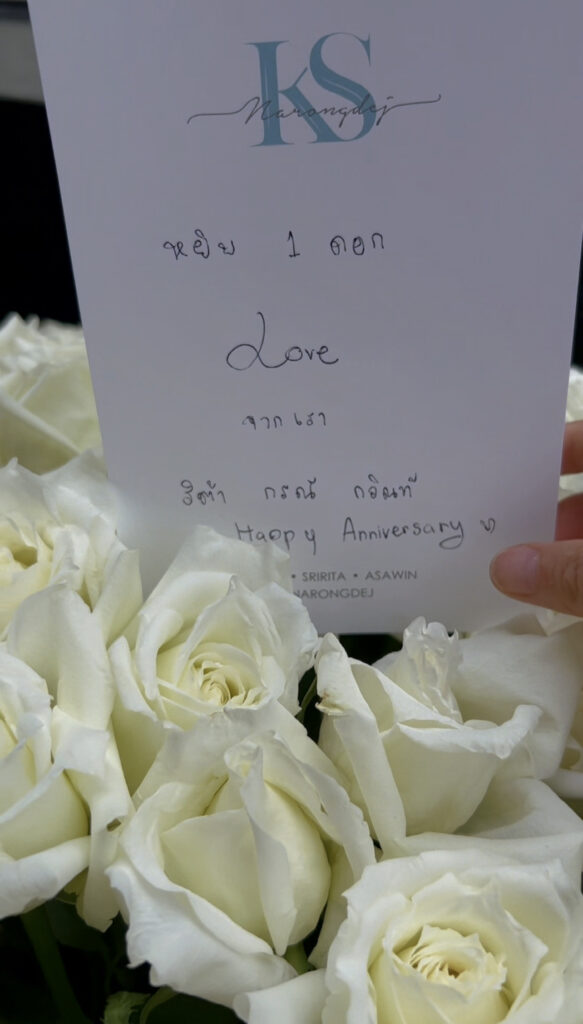 KS
Narongdej
หยิบ 1 ดอก
Love
จากเรา
ริต้า กรณ์ กวินท์
Happy Anniversary
• SRIRITA • ASAWIN
NARONGDEJ